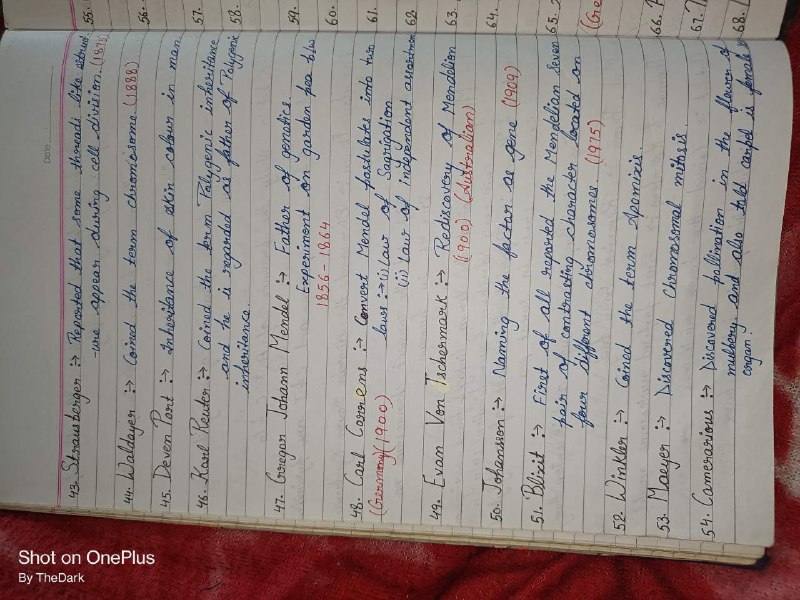 Date
43. Strausberger :→ Reported that some threads like struct
-ure appear during cell division. (1875)
44. Waldayer :→ Coined the term chromosome. (1888)
45. Deven Port :→ Inheritance of skin colour in man
46. Karl Reuter :→ Coined the term Polygenic inheritance
and he is regarded as father of Polygenic
inheritance.
47. Grregor Johann Mendel :→ Father of genetics.
Experiment on garden pea b/w
1856-1864
48. Carl Correns :→ Convert Mendel postulates into two
(Germany)(1900) laws :→ (i) Law of Sagrigation
(ii) Law of independent assortmen
49. Evan Von Tschermark :→ Rediscovery of Mendelion
(1900) (Australian)
50. Johansson :→ Naming the factor as gene (1909)
51. Blixit :→ First of all reported the Mendelian seven
pair of contrasting character located on
four different chromosomes. (1975)
52. Winkler :→ Coined the term Apomixis.
53. Maeyer :→ Discovered Chromosomal mitosis.
54. Camerarious :→ Discovered pollination in the flower of
mulberry, and also told carpel is female
organ.
55.
56.
57.
58.
59.
60.
61.
62.
63.
64.
65.
(Gre
66.
67.
68.
Shot on OnePlus
By TheDark